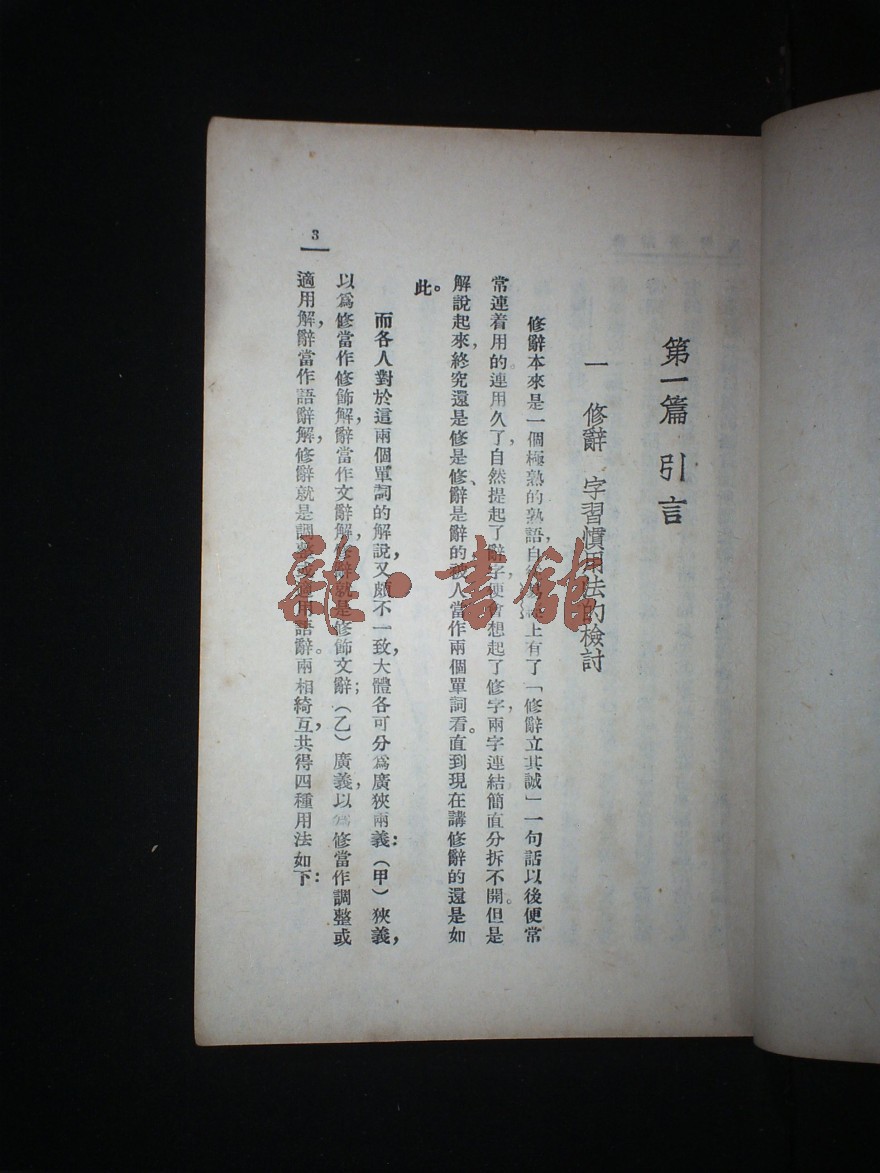 第一篇 引言
一 修辭 字習慣用法的檢討
修辭本來是一個極熟的熟語,自從 上有了「修辭立其誠」一句話以後便常
常連着用的。連用久了,自然提起了辭字,便會想起了修字,兩字連結簡直分拆不開。但是
解說起來,終究還是修是修、辭是辭的,被人當作兩個單詞看。直到現在講修辭的還是如
此。
而各人對於這兩個單詞的解說,又頗不一致,大體各可分爲廣狹兩義:(甲)狹義,
以爲修當作修飾解,辭當作文辭解, 辭就是修飾文辭;(乙)廣義,以爲修當作調整或
適用解,辭當作語辭解,修辭就是調整或適用語辭。兩相綺互,共得四種用法如下:
3
雜·書館